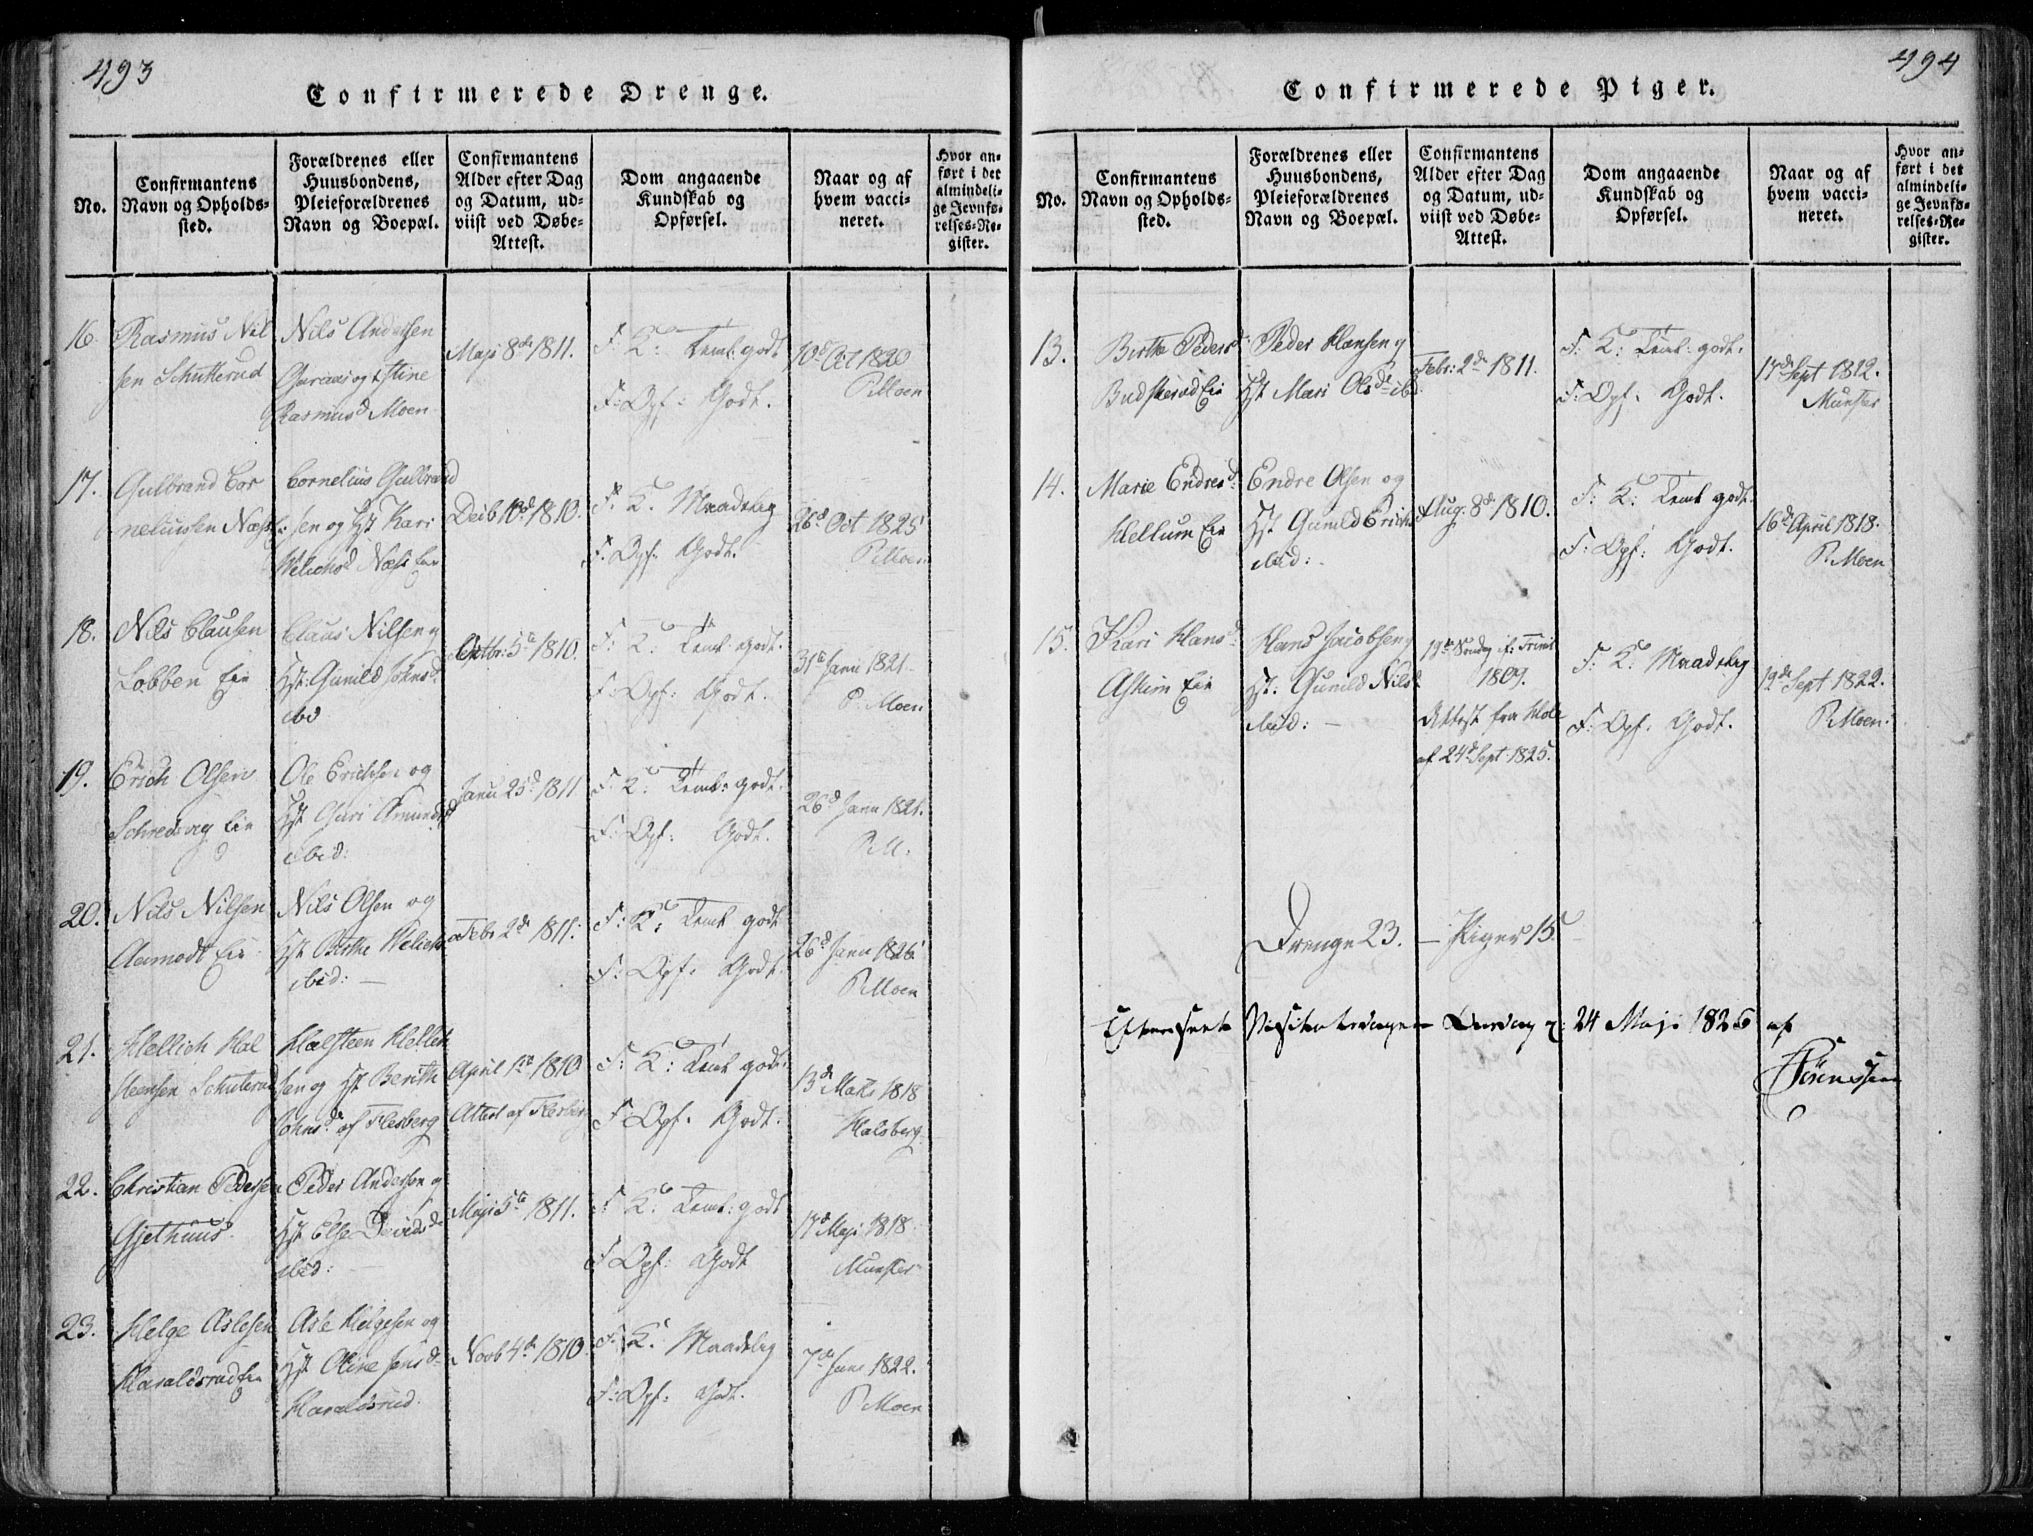 493
Confirmerede Drenge.
No.
Confirmantens
Navn og Opholds-
sted.
Forældrenes eller
Huusbondens,
Pleieforældrenes
Navn og Boepæl.
Confirmantens
Alder efter Dag
og Datum, ud-
viist ved Døbe-
Attest.
Dom angaaende
Kundskab og
Opførsel.
Naar og af
hvem vacci-
neret.
Hvor an-
ført i det
almindeli-
ge Jevnfø-
relses-Re-
gister.
16.
Rasmus Nil
sen Schutterud
Nils Andersen
og Stine
Rasmusd Moen
Maji 8de 1811.
F: K: Teml: godt
F: Opf: Godt.
10d Oct 1820
P. Moen
17.
Gulbrand Cor
neliussen Næss
Cornelius Gulbrand
sen og Hst Kari
Næss Eie
Decb 10d 1810.
F: K: Maadelig
F: Opf: Godt.
26d Oct 1825
P. Moen
18.
Nils Clausen
Lobben Eie
Claus Nilsen og
Hst: Gunild Johnsd.
ibid
Octbr: 5te 1810.
F: K: Teml. godt.
F: Opf: Godt.
31te Janu 1821.
P. Moen
19.
Erich Olsen
Schredsvig Eie
Ole Erichsen og
Hst Guri Amundsd
ibid:
Janu 25d 1811
F: K: Teml: godt.
F: Opf: Godt.
26d Janu 1821.
P. M.
20.
Nils Nilsen
Aamodt Eie
Nils Olsen og
Hst Birthe
ibid: —
Febr 2de 1811.
F: K: Teml godt
F: Opf: Godt.
26d Janu 1826
P. Moen
21.
Hellich Hal
steensen Schuterud
Halsteen Hellich
sen og Hst Berith
Johnsd. af Flesberg
April 1te 1810
Attest af Flesberg
F: K: Teml godt.
F: Opf: Godt.
13de Mart 1818
Halsberg
22.
Christian Pedersen
Gjethuus.
Peder Andersen og
Hst Else Davidsd
ibid: —
Maji 5te 1811.
F: K: Teml: godt
F: Opf: Godt
17d Maji 1818.
Munster
23.
Helge Aslesen
Haraldsrud Eie
Asle Helgesen og
Hst Oline Jensd
Haraldsrud.
Novb 4de 1810.
F: K: Maadelig
F: Opf: Godt.
7de June 1822.
P. Moen
494
Confirmerede Piger.
No.
Confirmantens
Navn og Opholds-
sted.
Forældrenes eller
Huusbondens,
Pleieforældrenes
Navn og Boepæl.
Confirmantens
Alder efter Dag
og Datum, ud-
viist ved Døbe-
Attest.
Dom angaaende
Kundskab og
Opførsel.
Naar og af
hvem vacci-
neret.
Hvor an-
ført i det
almindeli-
ge Jevnfø-
relses-Re-
gister.
13.
Birthe Pedersd
Buskerud Eie
Peder Hansen og
Hst Mari Olsd ibd:
Febr: 2de 1811.
F: K: Teml: godt.
F: Opf: Godt.
17de Sept 1812.
Munster
14.
Marie Endresd:
Hellum Eie
Endre Olsen og
Hst Gunild Erichsd
ibid: -
Aug: 8de 1810.
F: K: Teml godt.
F: Opf: Godt.
16de April 1818.
P. Moen
15.
Kari Hansd:
Askim Eie
Hans Jacobsen og
Hst: Gunild Nilsd
ibid: —
19de Søndag ef: Trinit
1809.
Attest fra Hole
af 24de Sept 1825.
F: K: Maadelig
F: Opf: Godt.
19de Sept 1822.
P. Moen.
Drenge 23. — Piger 15.
Efterseet Visitatsdagen Onsdag d: 24 Maji 1826 af
Sørenssen